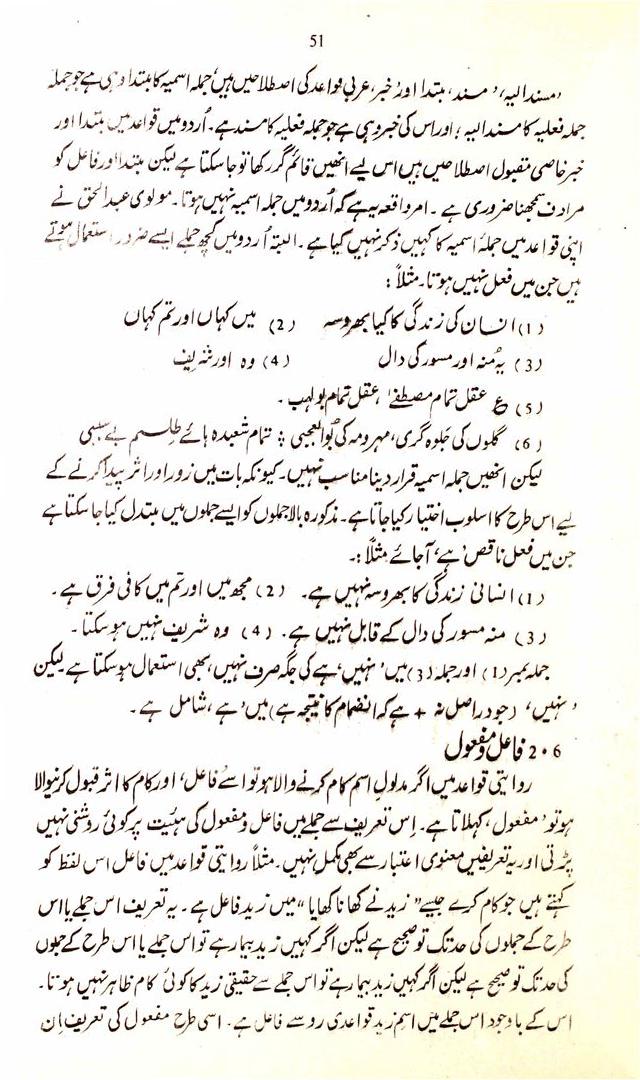 51
’مسند الیہ‘، ’مسند‘، مبتدا اور ’خبر‘، عربی قواعد کی اصطلاحیں ہیں، جملہ اسمیہ کا مبتدا وہی ہے جو جملہ
جملہ فعلیہ کا مسند الیہ؛ اور اس کی خبر وہی ہے جو جملہ فعلیہ کا مسند ہے۔ اُردو میں قواعد میں مبتدا اور
خبر خاصی مقبول اصطلاحیں ہیں اس لیے انھیں قائم گر رکھا تو جا سکتا ہے لیکن مبتدا اور فاعل کو
مرادف سمجھنا ضروری ہے۔ امر واقعہ یہ ہے کہ اُردو میں جملہ اسمیہ نہیں ہوتا۔ مولوی عبدالحق نے
اپنی قواعد میں جملۂ اسمیہ کا کہیں ذکر نہیں کیا ہے۔ البتہ اُردو میں کچھ جملے ایسے ضرور استعمال ہوتے
ہیں جن میں فعل نہیں ہوتا۔ مثلاً:
(1) انسان کی زندگی کا کیا بھروسہ (2) میں کہاں اور تم کہاں
(3) یہ مُنہ اور مسور کی دال (4) وہ اور شریف
(5) ع عقل تمام مصطفےٰ، عقل تمام بولہب۔
(6) گلوں کی جلوہ گری، مہر و مہ کی بوالعجبی ؛ تمام شعبدہ ہائے طلسم بے سببی
لیکن انھیں جملہ اسمیہ قرار دینا مناسب نہیں۔ کیونکہ بات میں زور اور اثر پیدا کرنے کے
لیے اس طرح کا اسلوب اختیار کیا جاتا ہے۔ مذکورہ بالا جملوں کو ایسے جملوں میں مبتدل کیا جا سکتا ہے
جن میں فعل ناقص ’ہے‘ آ جائے مثلاً:۔
(1) انسانی زندگی کا بھروسہ نہیں ہے۔ (2) مجھ میں اور تم میں کافی فرق ہے۔
(3) منہ مسور کی دال کے قابل نہیں ہے۔ (4) وہ شریف نہیں ہو سکتا۔
جملہ نمبر (1) اور جملہ (3) میں ’نہیں ہے‘ کی جگہ صرف ’نہیں‘ بھی استعمال ہو سکتا ہے لیکن
’نہیں‘ (جو دراصل نہ + ہے کہ انضمام کا نتیجہ ہے) میں ’ہے‘ شامل ہے۔
2.6 فاعل و مفعول
روایتی قواعد میں اگر مدلول اسم کام کرنے والا ہو تو اسے ’فاعل‘ اور کام کا اثر قبول کرنیوالا
ہو تو ’مفعول‘ کہلاتا ہے۔ اِس تعریف سے جملے میں فاعل و مفعول کی ہیئیت پر کوئی روشنی نہیں
پڑتی اور یہ تعریفیں معنوی اعتبار سے بھی مکمل نہیں۔ مثلاً روایتی قواعد میں فاعل اس لفظ کو
کہتے ہیں جو کام کرے جیسے ”زید نے کھانا کھایا“ میں زید فاعل ہے۔ یہ تعریف اس جملے یا اس
طرح کے جملوں کی حد تک تو صحیح ہے لیکن اگر کہیں زید بیمار ہے تو اس جملے یا اس طرح کے جملوں
کی حد تک تو صحیح ہے لیکن اگر کہیں زید بیمار ہے تو اس جملے سے حقیقی زید کا کوئی کام ظاہر نہیں ہوتا۔
اس کے باوجود اس جملے میں اسم زید قواعدی رو سے فاعل ہے۔ اسی طرح مفعول کی تعریف اِن